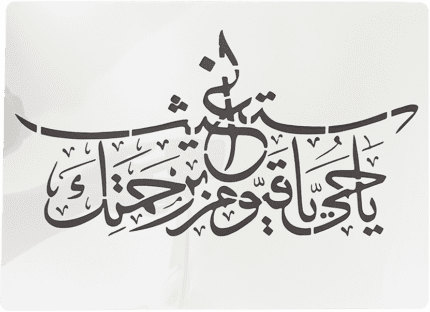 يا حي يا قيوم برحمتك
نستغيث